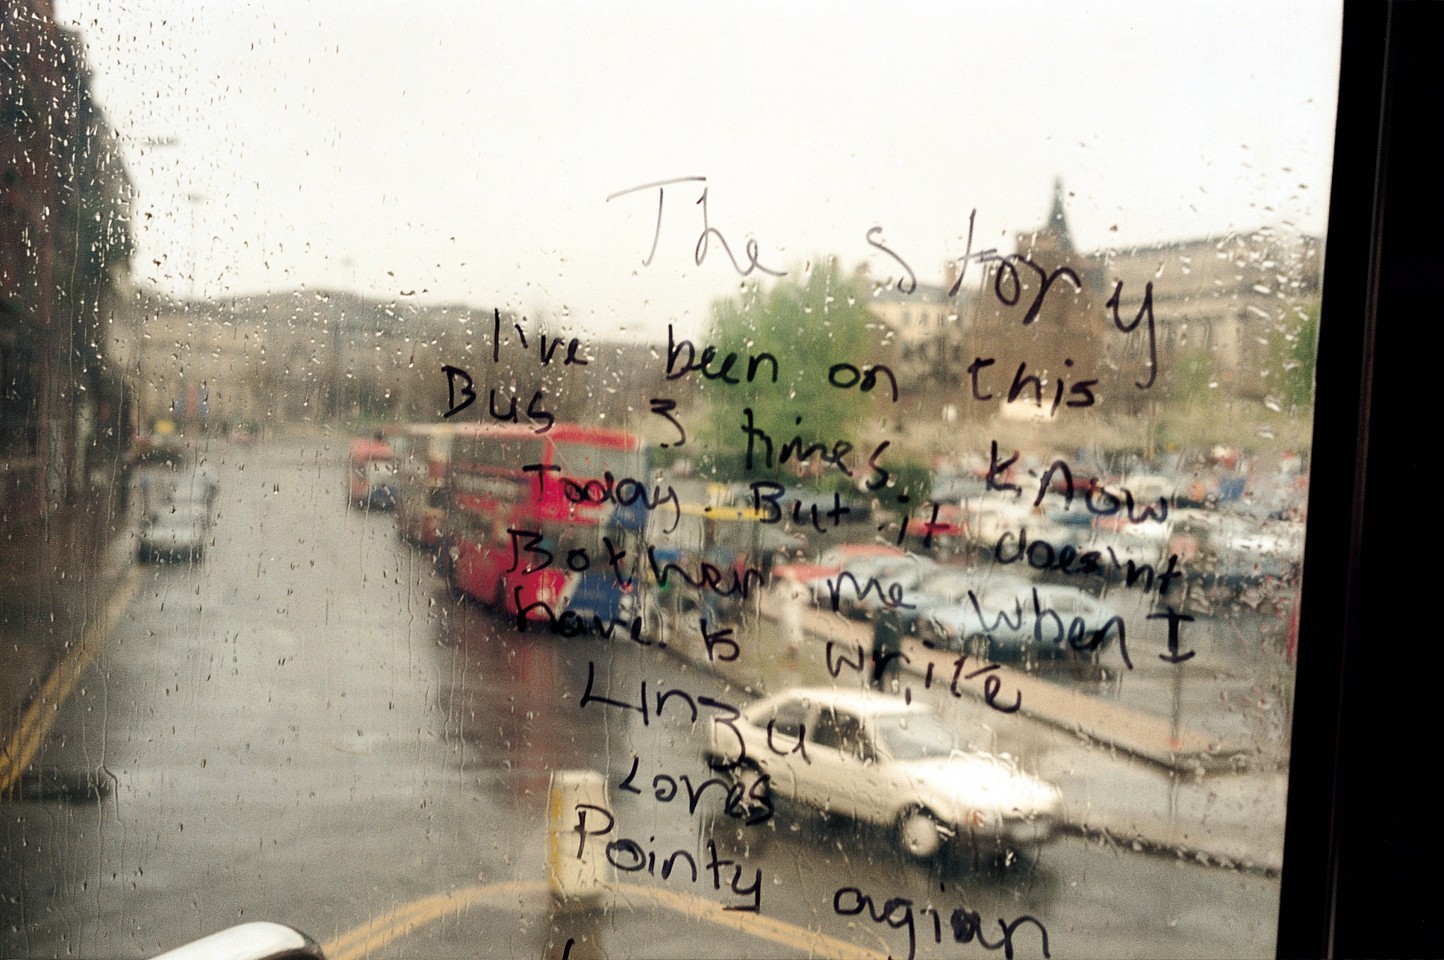 The story
I've been on this
Bus 3 times. know
Today. But it does'nt
Bother me when I
have to write
Linzy
Loves
Pointy agian